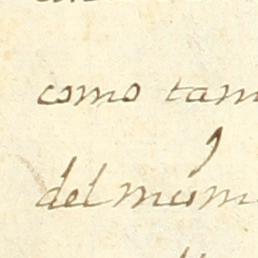 como tam
del mism